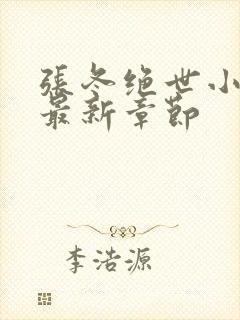 張冬绝世小
最新章節
李浩源